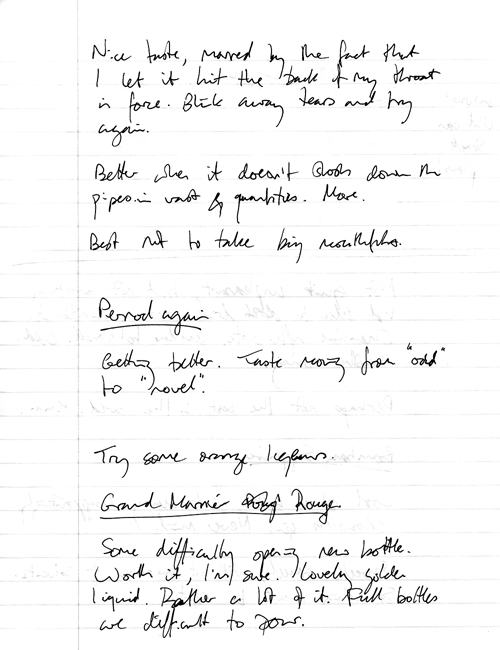 Nice taste, marred by the fact that
I let it hit the back of my throat
in force. Blink away tears and try
again.
Better when it doesn't flood down the
pipes in vast quantities. More.
Best not to take big mouthfuls.
Pernod again
Getting better. Taste moving from "odd"
to "novel".
Try some orange liqueurs.
Grand Marnier Rouge
Some difficulty opening new bottle.
Worth it, I'm sure. Lovely golden
liquid. Rather a lot of it. Full bottles
are difficult to pour.